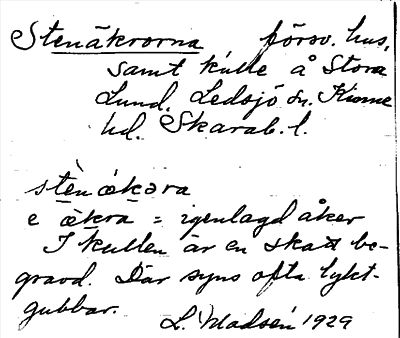 Stenåkrorna försv. hus,
samt kulle å Stora
Lund. Ledsjö sn. Kinne
hd. Skarab. l.
stèn ǽkəra
e ækra = igenlagd åker
I kullen är en skatt be-
gravd. Där syns ofta lykt-
gubbar.
L. Madsén 1929